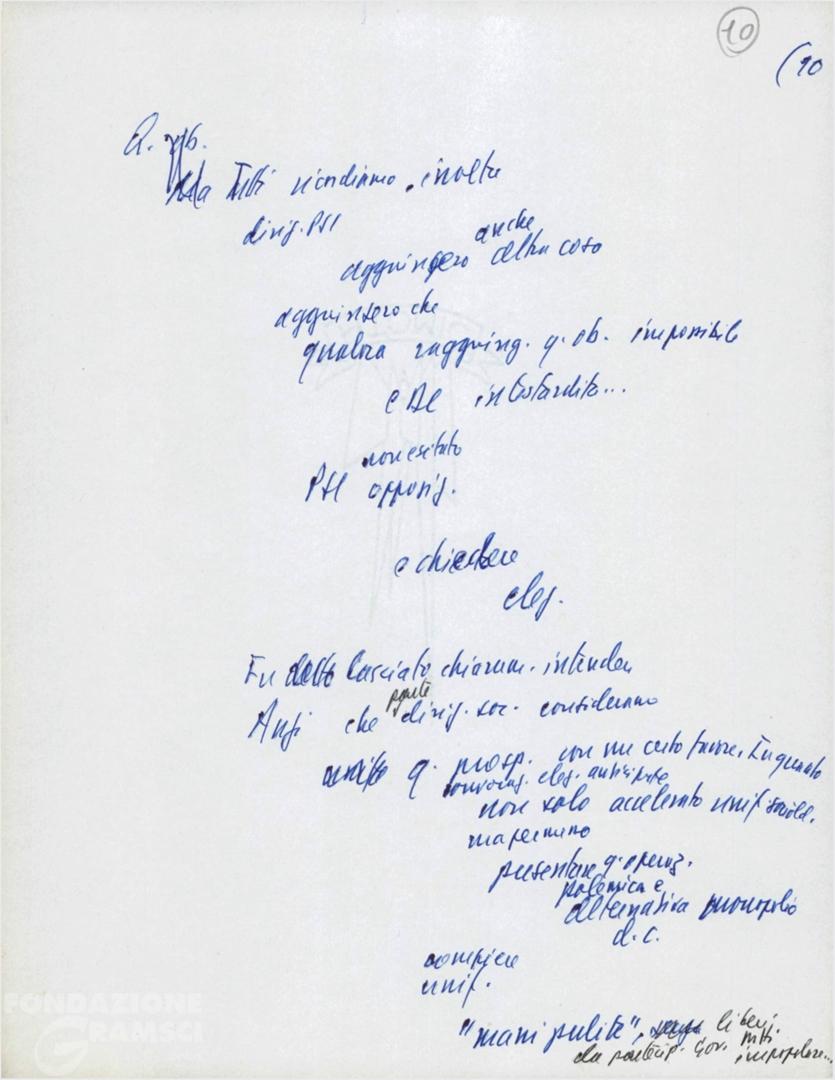 10
(10
Ma Tutti ricordiamo, inoltre
dirig. PSI
anche
aggiunsero altra cosa
aggiunsero che
qualora raggiung. q. ob. impossibile
e DC intestardita...
non esitato
PSI opposiz.
e chiedere
elez.
Fu detto lasciato chiaram. intendere
parte
Anzi che dirig. soc. considerano
q. prosp. con un certo favore. In quanto
convocaz. elez. anticipate
non solo accelerato unif. sociald.
ma permesso
presentare q. operaz.
polemica e
alternativa monopolio
d.c.
compiere
unif.
"mani pulite", liberi
da partecip. Gov. impopolare...
FONDAZIONE
GRAMSCI